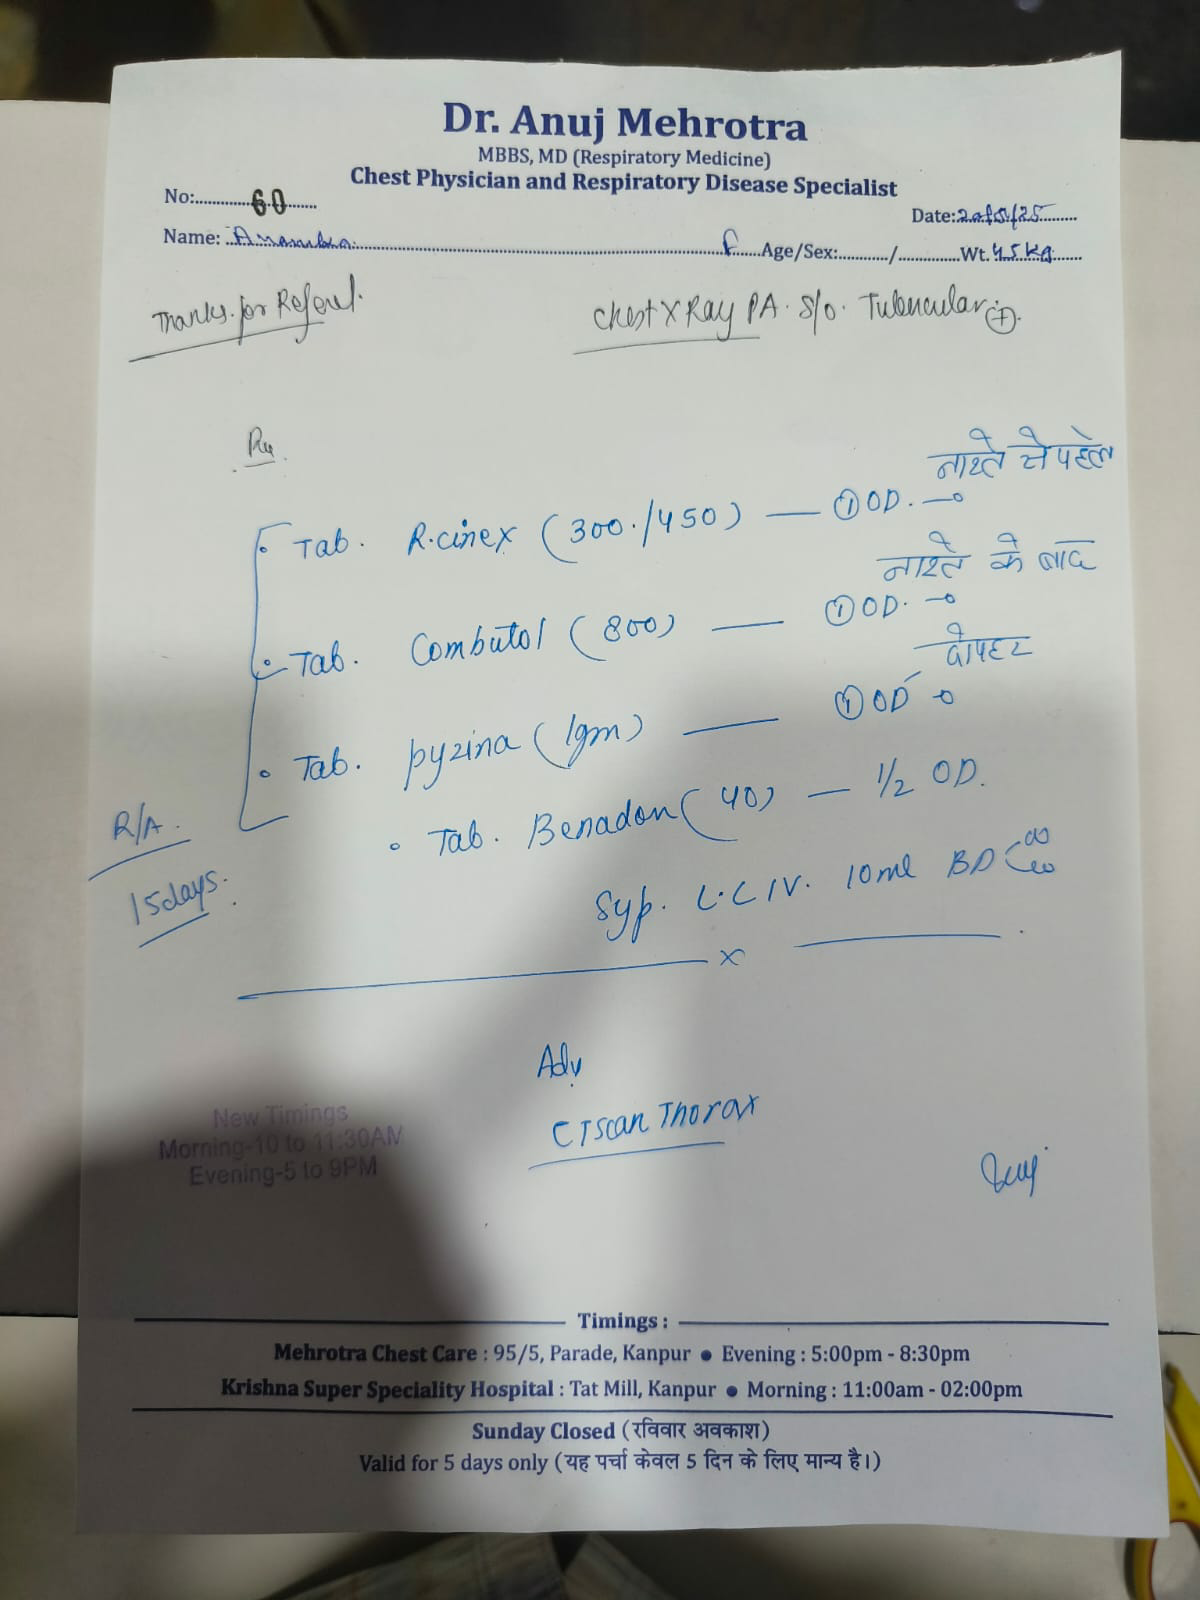 Dr. Anuj Mehrotra
MBBS, MD (Respiratory Medicine)
Chest Physician and Respiratory Disease Specialist
No:............60.......
Date:
Name: F Age/Sex:.........../.............Wt. 45 kg
Thanks for Referal.
Chest X Ray PA. S/o. Tubercular (+).
Rx
नाश्ते से पहले
Tab. R.cinex (300./450) — (1) OD. →
नाश्ते के बाद
Tab. Combutol (800) — (1) OD. →
दोपहर
Tab. pyzina (1gm) — (1) OD →
Tab. Benadon (40) — 1/2 OD.
R/A.
15days.
Syp. 10ml BD
x
Adv
CT scan Thorax
New Timings
Morning-10 to 11:30AM
Evening-5 to 9PM
Timings :
Mehrotra Chest Care : 95/5, Parade, Kanpur • Evening : 5:00pm - 8:30pm
Krishna Super Speciality Hospital : Tat Mill, Kanpur • Morning : 11:00am - 02:00pm
Sunday Closed (रविवार अवकाश)
Valid for 5 days only (यह पर्चा केवल 5 दिन के लिए मान्य है।)